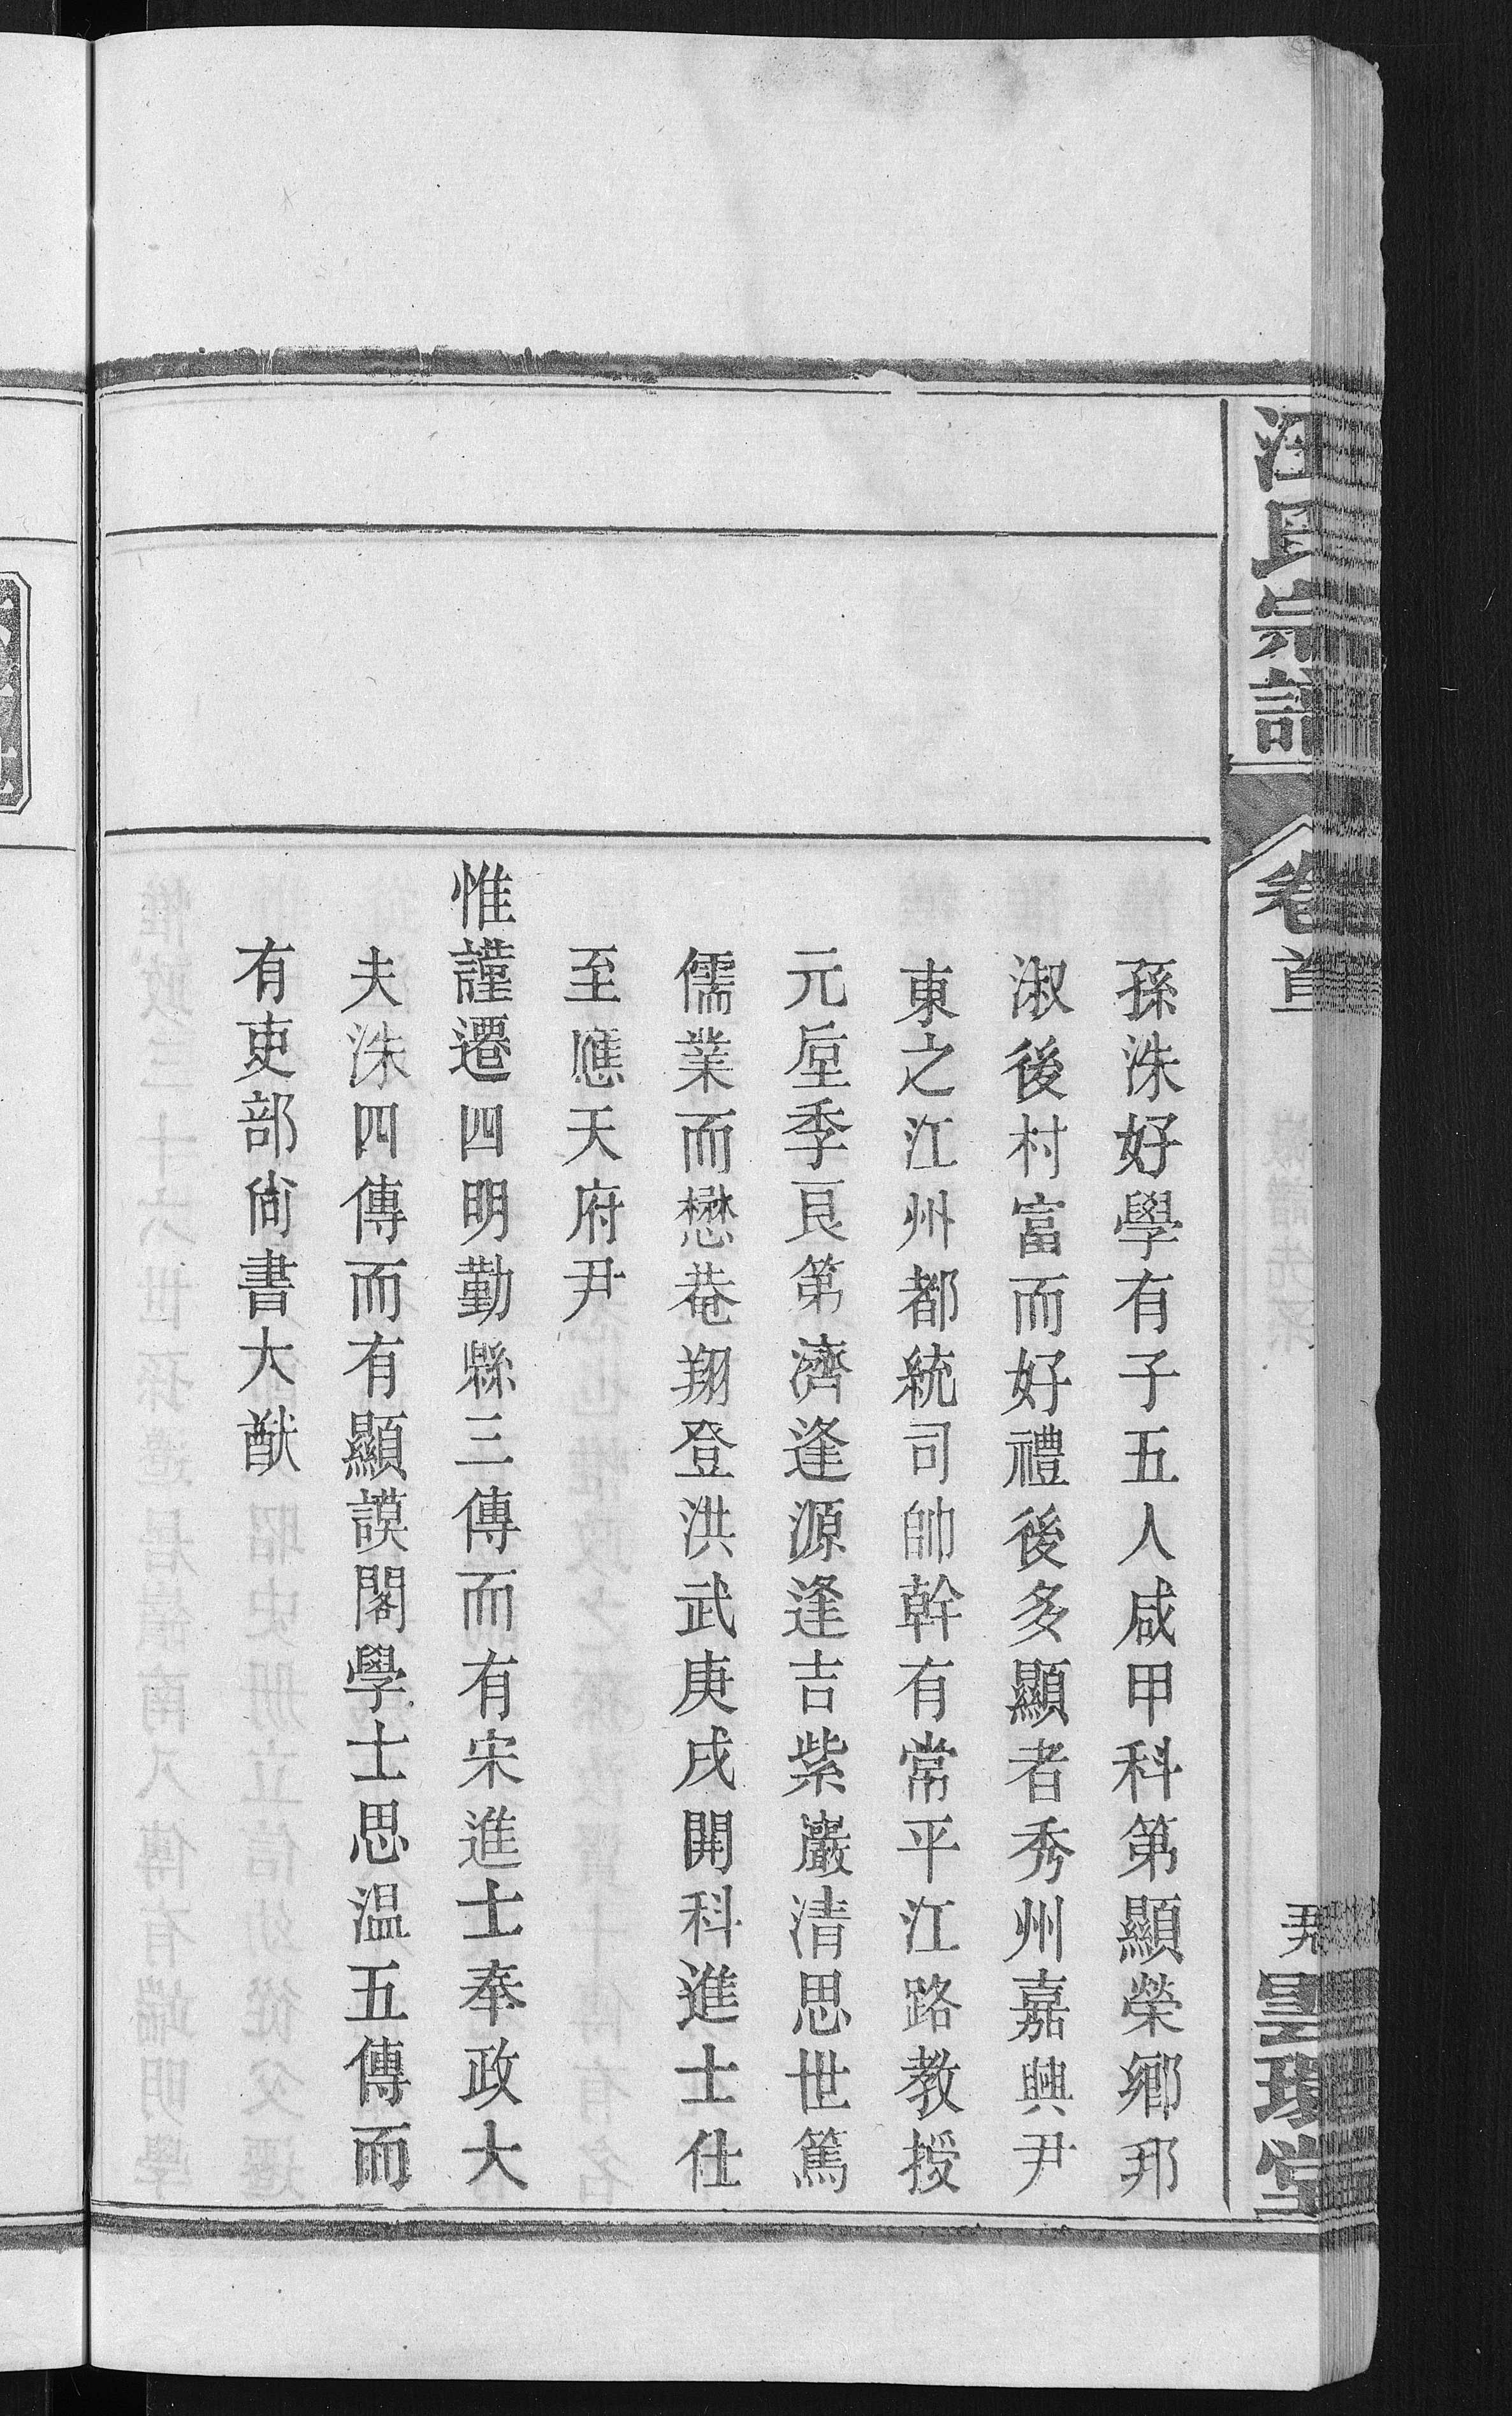 汪氏宗譜
卷首
孫洙好學有子五人咸甲科第顯榮鄉邦
淑後村富而好禮後多顯者秀州嘉興尹
東之江州都統司帥幹有常平江路教授
元垕季良第濟逢源逢吉紫巖清思世篤
儒業而懋菴翔登洪武庚戌開科進士仕
至應天府尹
惟謹遷四明勤縣三傳而有宋進士奉政大
夫洙四傳而有顯謨閣學士思溫五傳而
有吏部尙書大猷